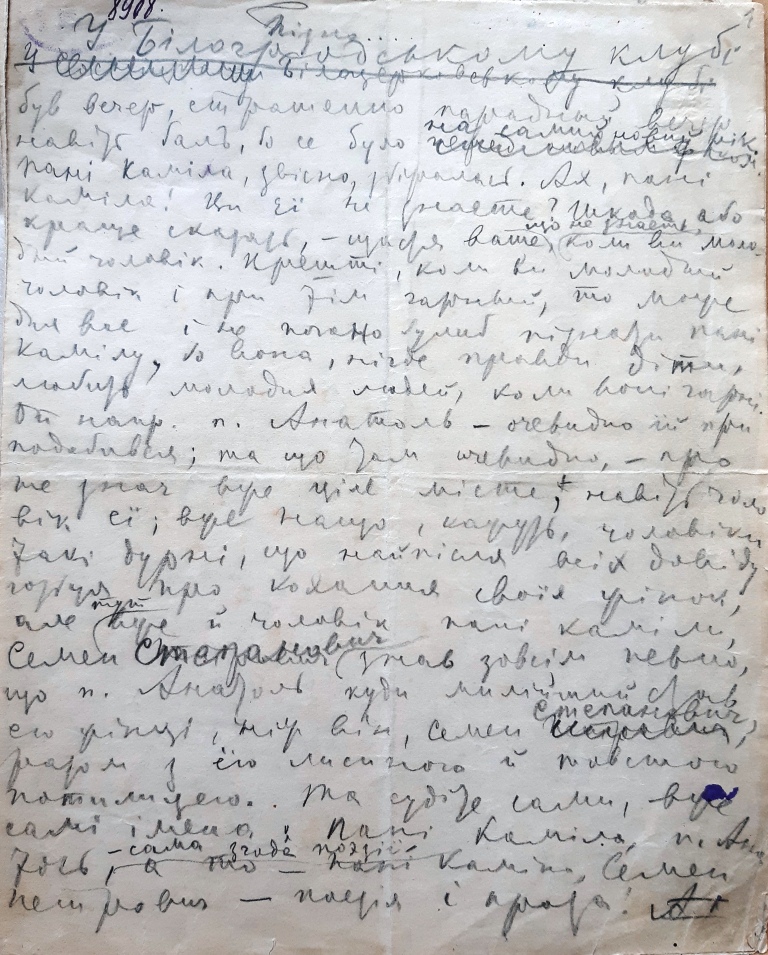 8908.
1
Пізно...
У Білогородському клубі
У Білоцерковському клубі
був вечер, страшенно парадный вечір
навіть баль, бо се було на самий новий рік.
пані Каміла, звісно, убіралась. Ах, пані
Каміла! Ви її не знаєте? Шкода, або
краще сказать, – щастя ваше, що не знаєте, коли ви моло-
дий чоловік. Врешті, коли ви молодий
чоловік і при тім гарный, то може
для вас і не погано було б пізнати пані
Камілу, бо вона, нігде правди діти,
любить молодих людей, коли вони гарні.
От напр. п. Анатоль – очевидно їй при
подобався; та що там очевидно, – про
те знає вже ціле місто, навіть чоло
вік її; вже нащо, кажуть, чоловіки
такі дурні, що найпізнія всіх довіду
ються про кохання своїх жінок,
але тут вже й чоловік пані Каміли,
Семен Степанович знав зовсім певно,
що п. Анатоль куди милійший став
єго жінці, ніж він, Семен Степанович,
разом з єго лисиною й товстою
потилицею. Та судіте сами, вже
самі імена: Пані Каміла, п. Ана
толь, – сама згода поезії – а то – пані Каміла, Семен
Петрович – поезія і проза! Ах